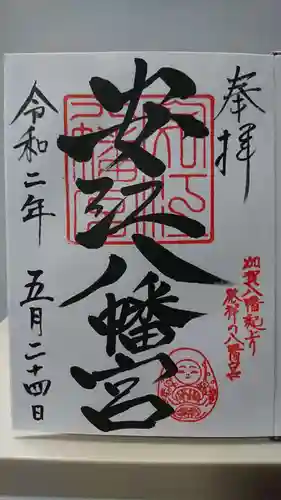 奉拝
加賀八幡起上り
発祥の八幡さま
安江八幡宮
令和二年 五月二十四日